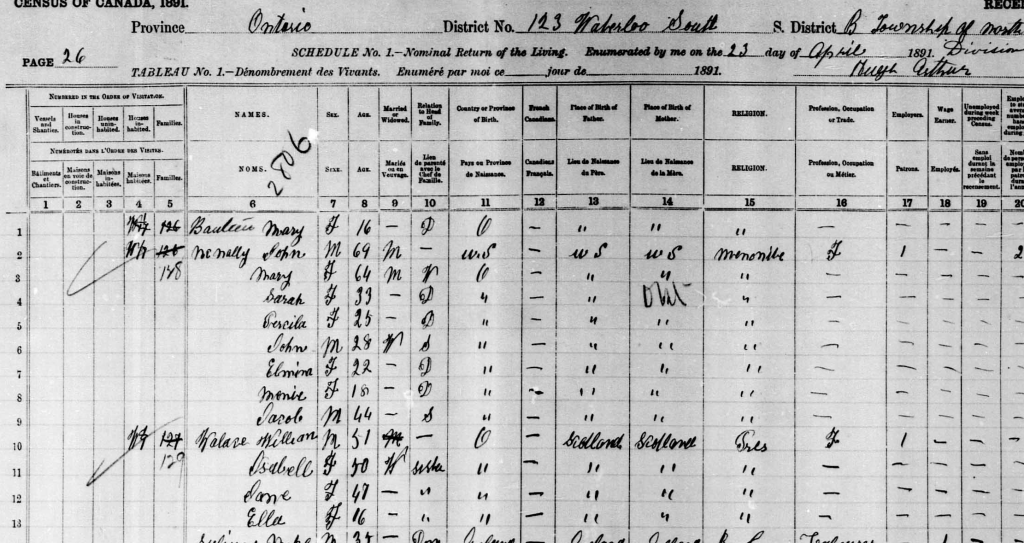 CENSUS OF CANADA, 1891.
Province Ontario District No. 123 Waterloo South S. District B Township of North
PAGE 26 SCHEDULE No. 1.—Nominal Return of the Living. Enumerated by me on the 23 day of April 1891. Division
TABLEAU No. 1.—Dénombrement des Vivants. Enuméré par moi ce jour de 1891. Arthur
NUMBERED IN THE ORDER OF VISITATION.
Vessels and Shanties. Houses in construction. Houses uninhabited. Houses inhabited. Families. NAMES. SEX. AGE. Married or Widowed. Relation to Head of Family. Country or Province of Birth. French Canadians. Place of Birth of Father. Place of Birth of Mother. RELIGION. Profession, Occupation or Trade. Employers. Wage Earner. Unemployed during week preceding Census.
2806
NUMÉROTÉS DANS L'ORDRE DES VISITES.
Bâtiments et Chantiers. Maisons en voie de construction. Maisons inhabitées. Maisons habitées. Familles. NOMS. SEXE. AGE. Mariés ou en Veuvage. Lien de parenté avec le Chef de Famille. Pays ou Province de Naissance. Canadiens Français. Lieu de Naissance du Père. Lieu de Naissance de la Mère. RELIGION. Profession, Occupation ou Métier. Patrons. Employés. Sans emploi durant la semaine précédant le recensement.
1 2 3 4 5 6 7 8 9 10 11 12 13 14 15 16 17 18 19 20
1 126 Mary F 16 — D O — " " " — — — —
2 McNally John M 69 M — U.S — U S U S Menonite F 1 — — 2
3 128 Mary F 64 M W O — " " " — — — —
4 Sarah F 33 — D " — " Ont " — — — —
5 Percila F 25 — D " — " " " — — — —
6 John M 28 W S " — " " " — — — —
7 Elmina F 22 — D " — " " " — — — —
8 F 18 — D " — " " " — — — —
9 Jacob M 44 — S " — " " " — — — —
10 127 Walace William M 51 M — O — Scotland Scotland Pres F 1 — —
11 129 Isabell F 50 W sister " — " " " — — — —
12 Jane F 47 — " " — " " " — — — —
13 Ella F 16 — " " — " " " — — — —
M 35 — Dom Ireland — Ireland Ireland